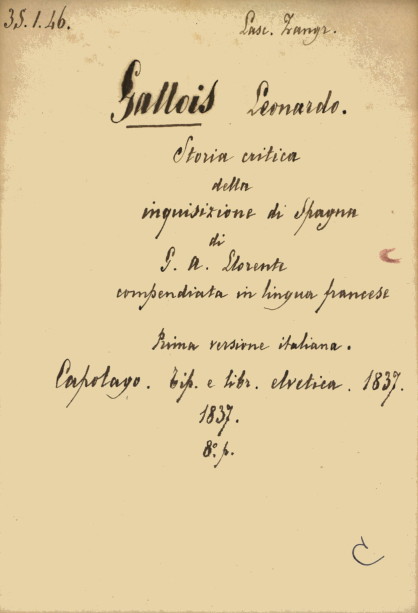 35.1.46.
Lasc. Zangr.
Gallois Leonardo.
Storia critica
della
inquisizione di Spagna
di
G. A. Llorente
compendiata in lingua francese
Prima versione italiana.
Capolago. Tip. e libr. elvetica. 1837.
1837.
8.° p.
C